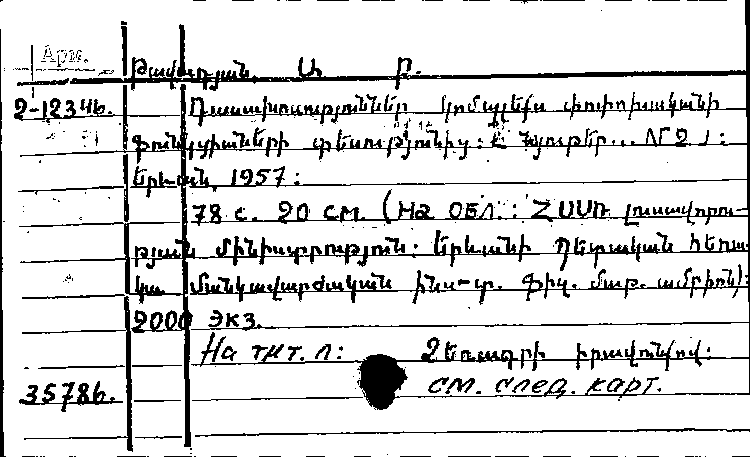 Арм.
Թավադյան, Ա. Բ.
2-12346.
Դասախոսություններ կոմպլեքս փոփոխականի
ֆունկցիաների տեսությունից: № 2):
Երևան, 1957:
78 с. 20 см. (На обл.: ՀՍՍՌ լուսավորու-
թյան մինիստրություն: Երևանի պետական հեռա-
կա մանկավարժական ինս-տ. ֆիզ. մաթ. ամբիոն):
2000 экз.
На тит. л: Ձեռագրի իրավունքով:
35786. см. след. карт.